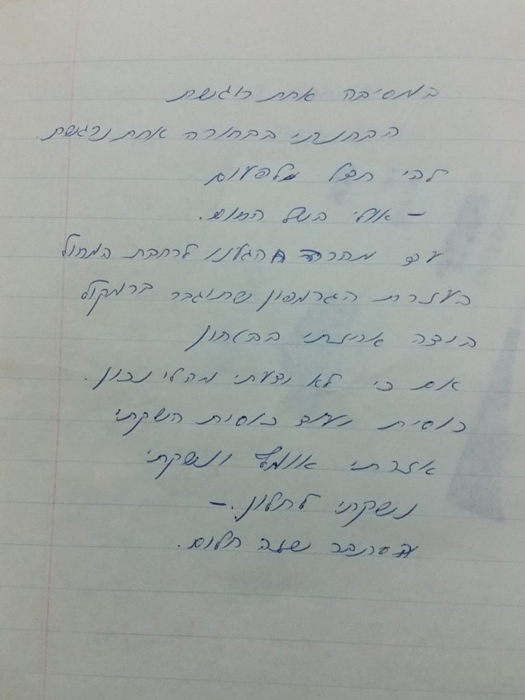 במסיבה אחת רוגשת
הבחנתי בבחורה אחת נרגשת
להי תכל מלפעום
– אולי בשל החום.
עד מהרה הגענו לרחבת המחול
בעזרת הגרמפון שתוגבר ברמקול
בידה אחזתי בבטחון
אם כי לא ידעתי מהלי נכון.
כוסית ועוד כוסית השקתי
אזרתי אומץ ונשקתי
נשקתי לחלון. –
הסתבר שזה חלום.